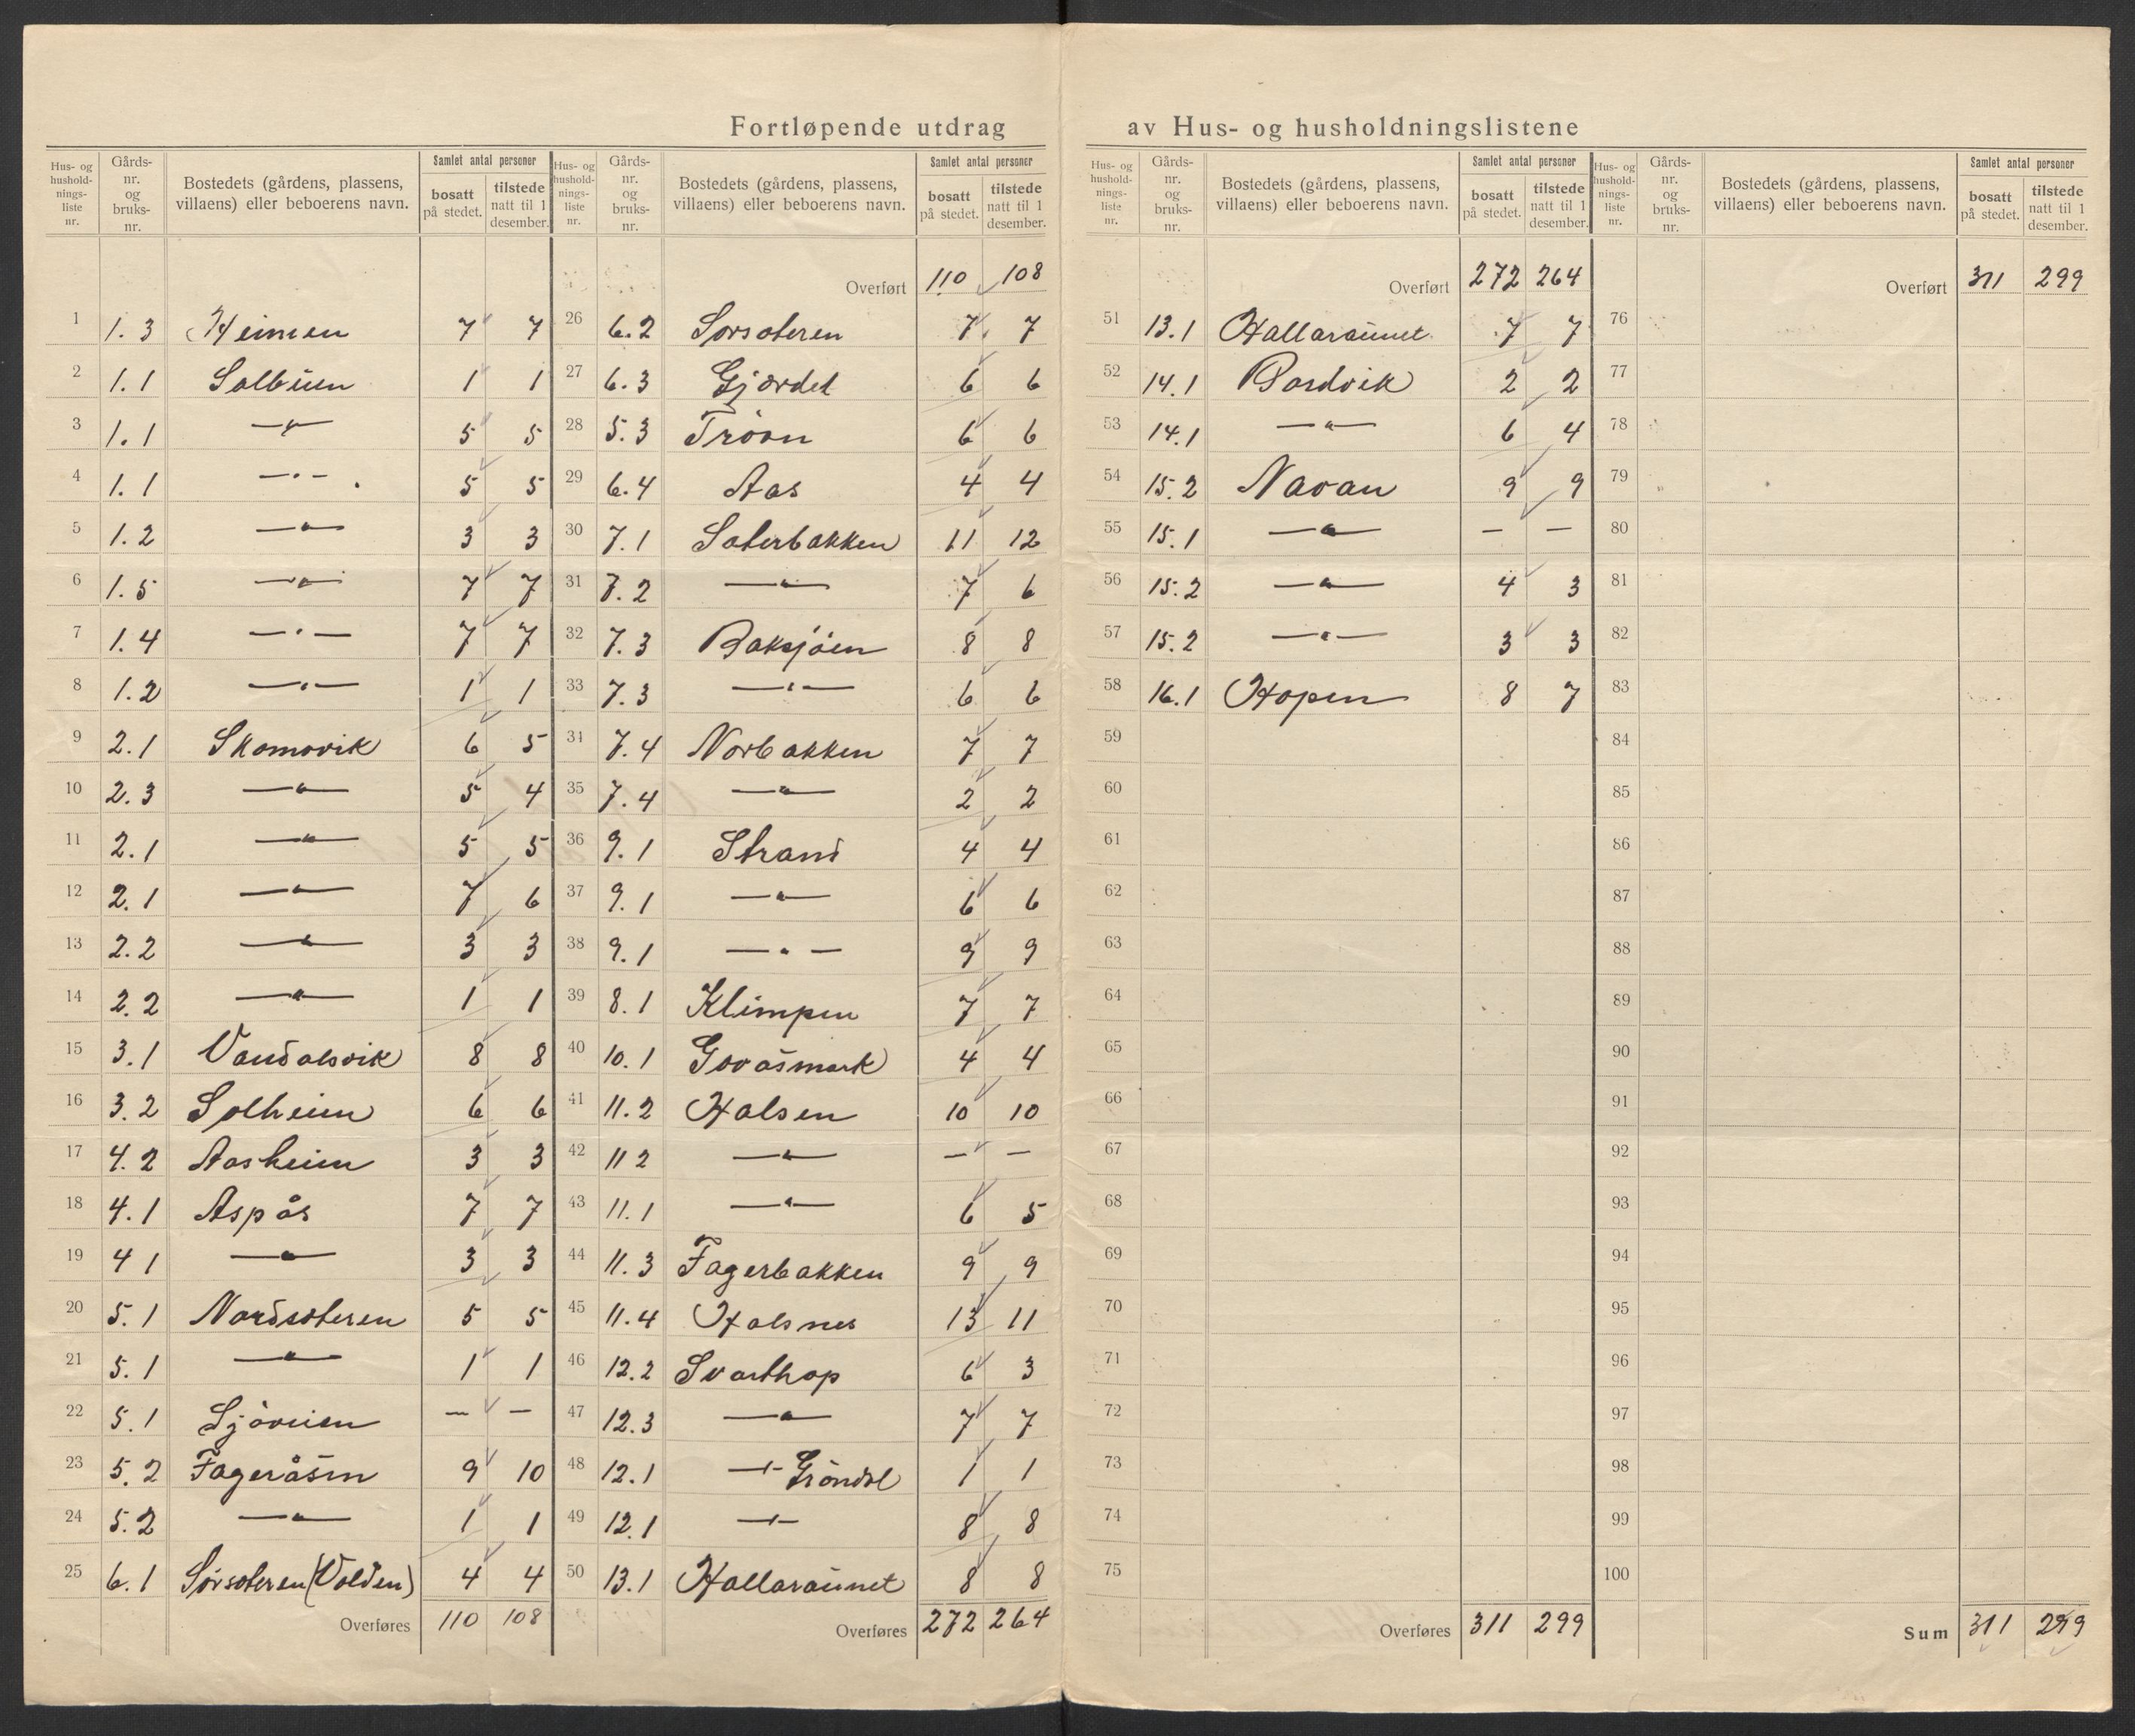 Fortløpende utdrag av Hus- og husholdningslistene
Hus- og husholdnings-liste nr. | Gårds-nr. og bruks-nr. | Bostedets (gårdens, plassens, villaens) eller beboerens navn. | Samlet antal personer bosatt på stedet. | tilstede natt til 1 desember.
1 1.3 Heimen 7 7
2 1.1 Salbuen 1 1
3 1.1 —"— 5 5
4 1.1 —"— 5 5
5 1.2 —"— 3 3
6 1.5 —"— 7 7
7 1.4 —"— 7 7
8 1.2 —"— 1 1
9 2.1 Skomovik 6 5
10 2.3 —"— 5 4
11 2.1 —"— 5 5
12 2.1 —"— 7 6
13 2.2 —"— 3 3
14 2.2 —"— 1 1
15 3.1 Vandalsvik 8 8
16 3.2 Solheim 6 6
17 4.2 Aasheim 3 3
18 4.1 Aspås 7 7
19 4 1 —"— 3 3
20 5.1 Nordsæteren 5 5
21 5.1 —"— 1 1
22 5.1 Sjøveien — —
23 5.2 Fageråsen 9 10
24 5.2 —"— 1 1
25 6.1 Sørsæteren (Volden) 4 4
Overføres 110 108
Hus- og husholdnings-liste nr. | Gårds-nr. og bruks-nr. | Bostedets (gårdens, plassens, villaens) eller beboerens navn. | Samlet antal personer bosatt på stedet. | tilstede natt til 1 desember.
Overført 110 108
26 6.2 Sørsæteren 7 7
27 6.3 Gjærdet 6 6
28 5.3 Trøan 6 6
29 6.4 Aas 4 4
30 7.1 Sæterbakken 11 12
31 7.2 —"— 7 6
32 7.3 Baksjøen 8 8
33 7.3 —"— 6 6
34 7.4 Norbakken 7 7
35 7.4 —"— 2 2
36 9.1 Strand 4 4
37 9.1 —"— 6 6
38 9.1 —"— 9 9
39 8.1 Klimpen 7 7
40 10.1 Gravåsmark 4 4
41 11.2 Halsen 10 10
42 11 2 —"— — —
43 11.1 —"— 6 5
44 11.3 Fagerbakken 9 9
45 11.4 Halsnes 13 11
46 12.2 Svarthop 6 3
47 12.3 —"— 7 7
48 12.1 —"— Grøndal 1 1
49 12.1 —"— 8 8
50 13.1 Hallaraunet 8 8
Overføres 272 264
Hus- og husholdnings-liste nr. | Gårds-nr. og bruks-nr. | Bostedets (gårdens, plassens, villaens) eller beboerens navn. | Samlet antal personer bosatt på stedet. | tilstede natt til 1 desember.
Overført 272 264
51 13.1 Hallaraunet 7 7
52 14.1 Bardvik 2 2
53 14.1 —"— 6 4
54 15.2 Navan 9 9
55 15.1 —"— — —
56 15.2 —"— 4 3
57 15.2 —"— 3 3
58 16.1 Hopen 8 7
59
60
61
62
63
64
65
66
67
68
69
70
71
72
73
74
75
Overføres 311 299
Hus- og husholdnings-liste nr. | Gårds-nr. og bruks-nr. | Bostedets (gårdens, plassens, villaens) eller beboerens navn. | Samlet antal personer bosatt på stedet. | tilstede natt til 1 desember.
Overført 311 299
76
77
78
79
80
81
82
83
84
85
86
87
88
89
90
91
92
93
94
95
96
97
98
99
100
Sum 311 299